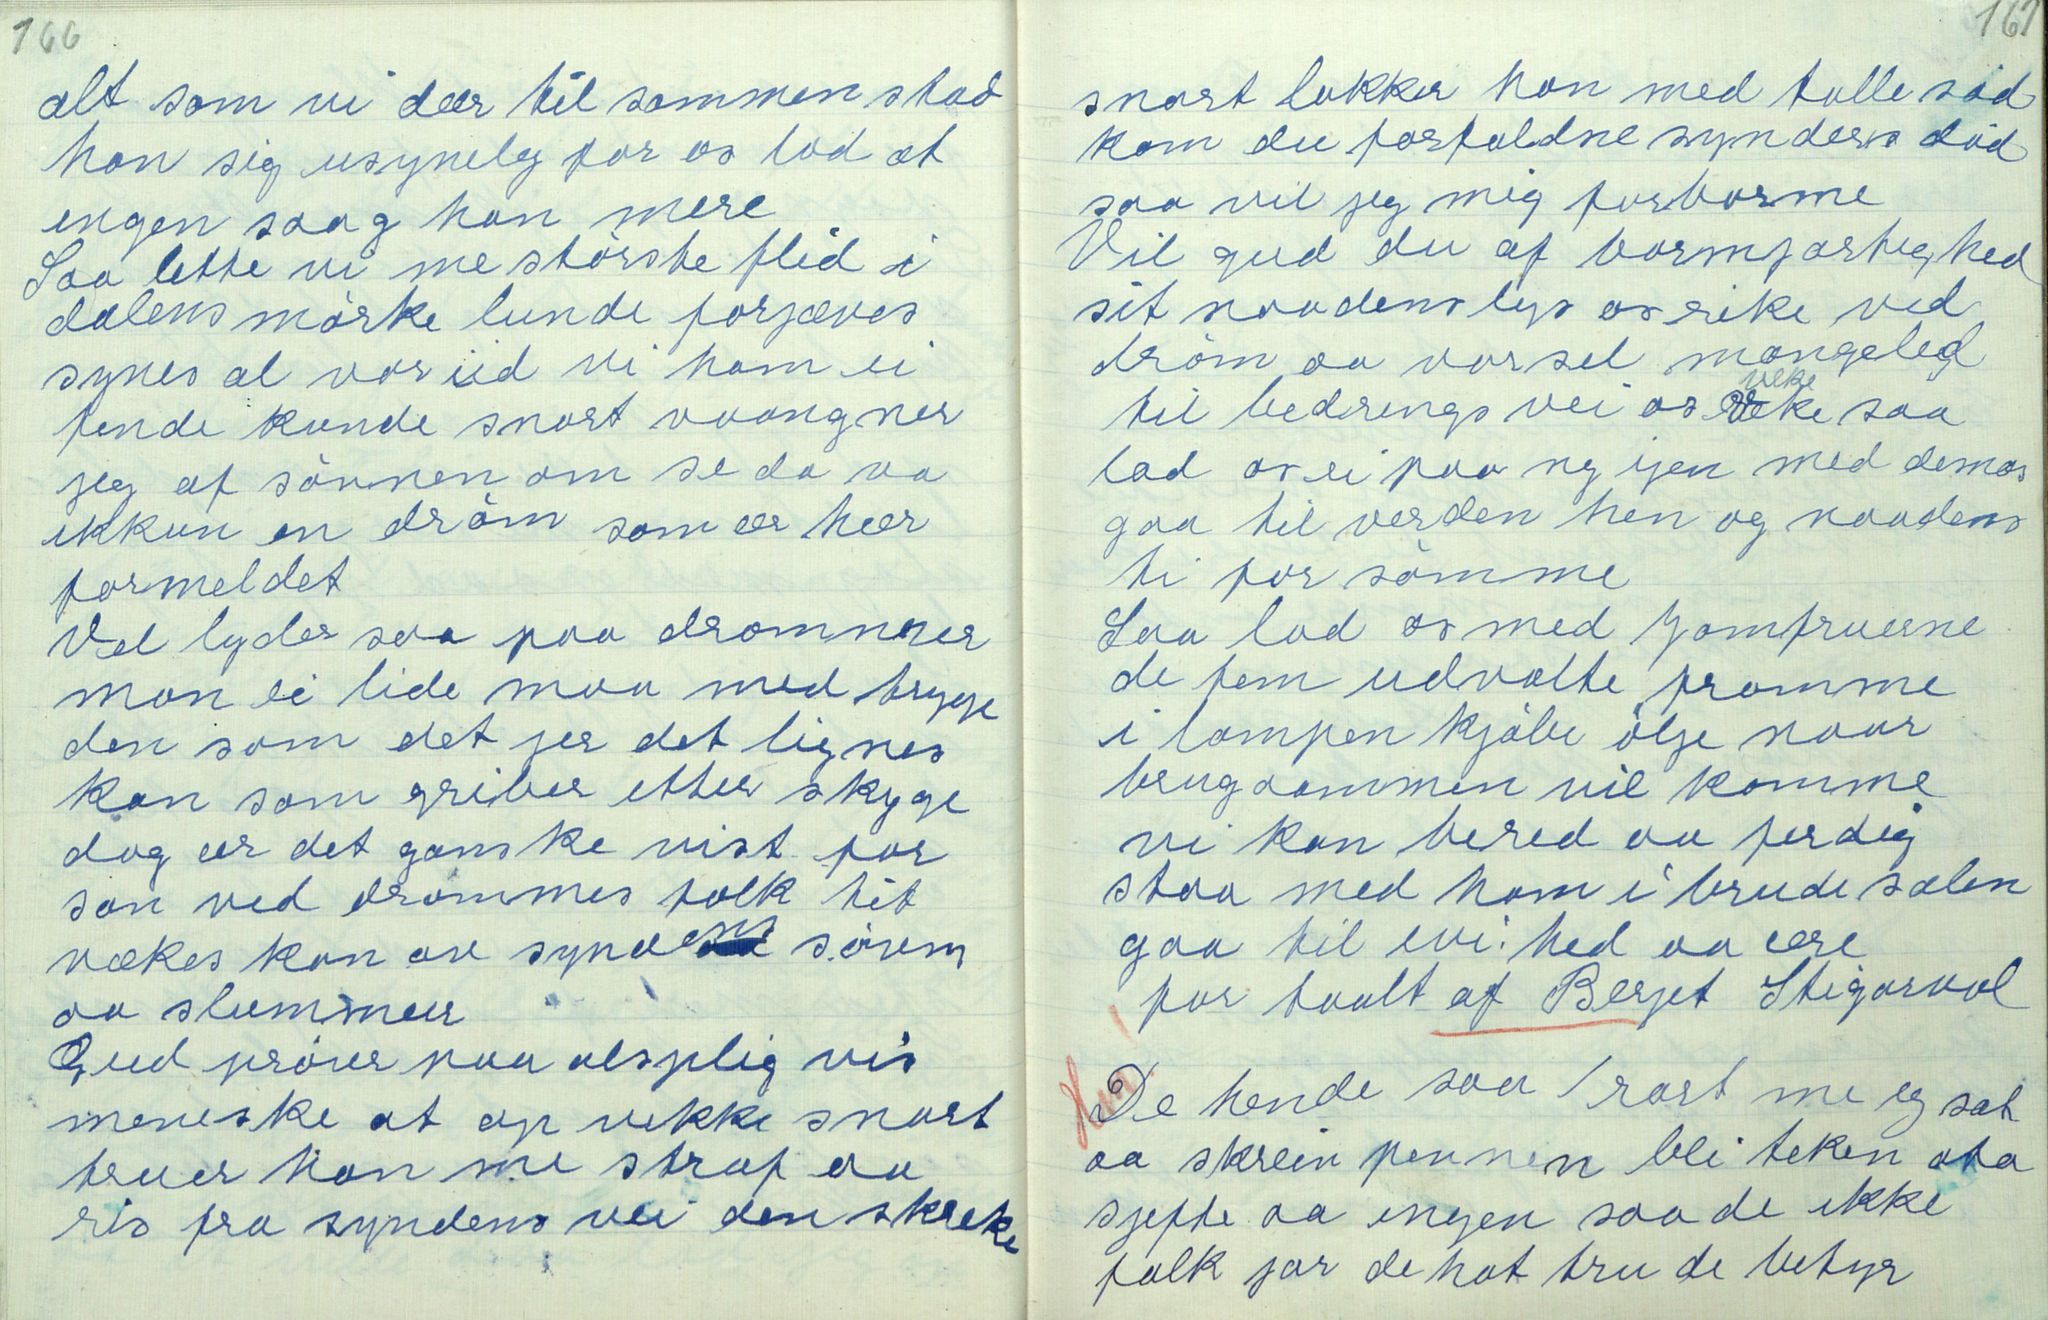 166
alt som vi dær til sammen stod
han sig usynelg for os lod at
engen saag han mere
Saa lette vi me störste flid i
dalens mörke lunde forjæves
synes al vor iid vi ham ei
finde kunde snart vaangner
jeg af sövnen om se da va
ikkun en dröm som ær hær
formeldet
Vel lyder saa paa drommer
man ei lide maa med trygge
den som det jer det lignes
kan som griber etter skygge
dog ær det ganske vist for
san ved drommes folk tit
vækes kan av syndens sövem
aa slummer
Gud pröver paa alsplig vis
meneske at op vekke snart
truer han me straf aa
ris fra syndens vei den skreke
167
snart lokker han med talle söd
kom du forfaldne synders död
saa vil jeg mig forbarme
Vil gud du af barmjartighed
sit naadens lys os rike ved
dröm aa varsel mangeled
til bedrings vei os veke saa
lad os ei paa ny igen med demas
gaa til verden hen og naadens
ti for sömme
Saa lad os med Jomfruerne
de fem udvalte fromme
i lampen kjöbe ölje naar
brugdommen vil komme
vi kan bered aa ferdig
staa med ham i brude salen
gaa til evi: hed aa ære
for taalt af Berjet Stigarvol
De hende saa rart me eg sat
aa skrein pennen blei teken ata
sjefte aa engen saa de ikke
folk jar de hat tru de betyr